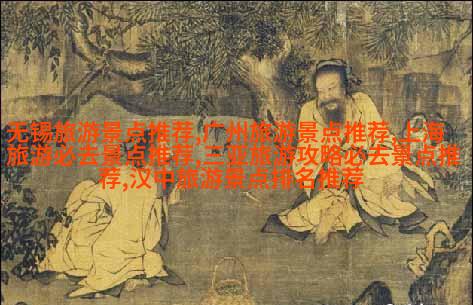 无锡旅游景点推荐,广州旅游景点推荐,上海
旅游必去景点推荐,三亚旅游攻略必去景点推
荐,汉中旅游景点排名推荐